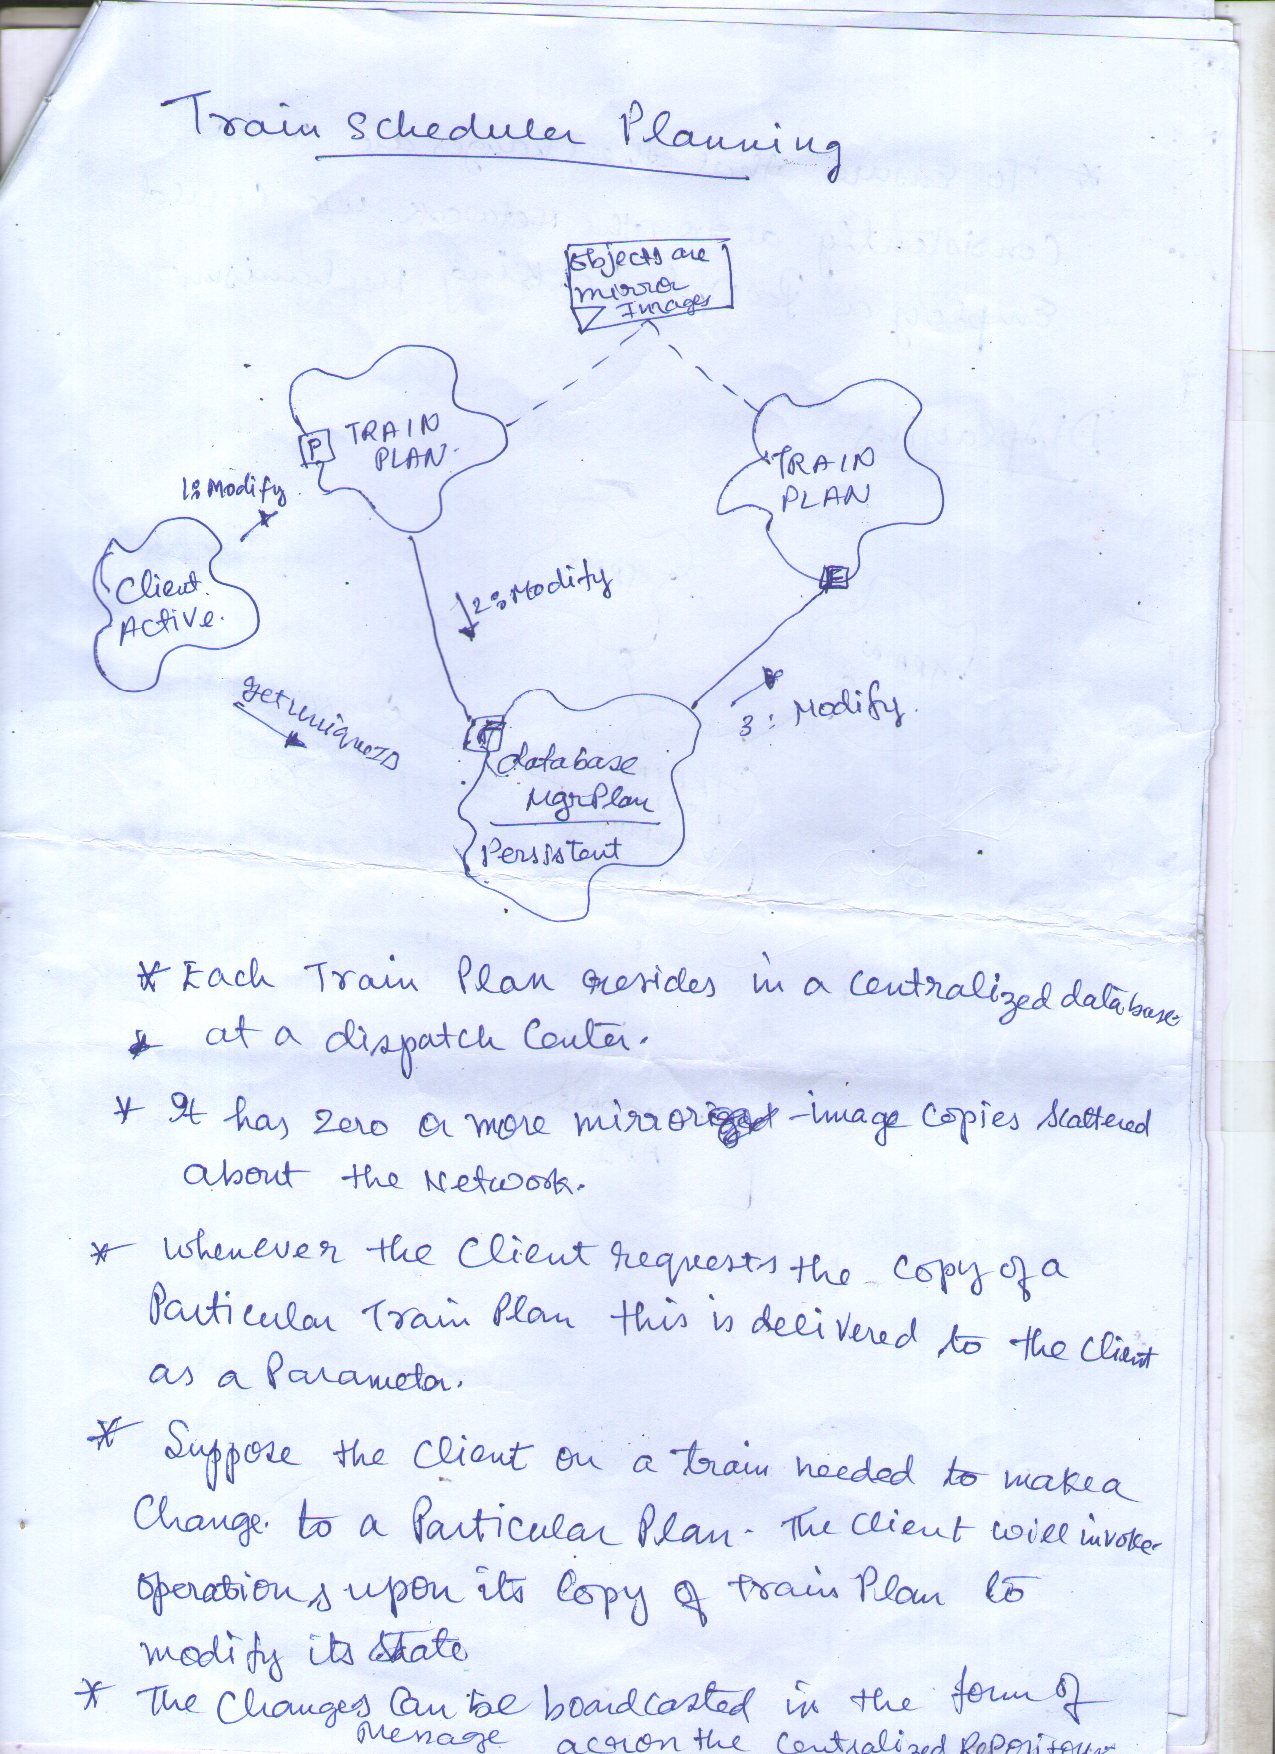 Train Scheduler Planning
Objects are
mirror
Images
TRAIN
PLAN.
P
TRAIN
PLAN
1: Modify
F
Client
Active.
2: Modify
getuniqueID
3: Modify.
database
MgrPlan
Persistent
* Each Train Plan resides in a centralized database
* at a dispatch Center.
* It has zero or more mirror -image copies scattered
about the Network.
* Whenever the Client requests the copy of a
Particular Train Plan this is delivered to the Client
as a Parameter.
* Suppose the Client on a train needed to make a
Change. to a Particular Plan. The Client will invoke
operations upon its Copy of train Plan to
modify its state
* The Changes Can be boardcasted in the form of
Message across the Centralized Repository